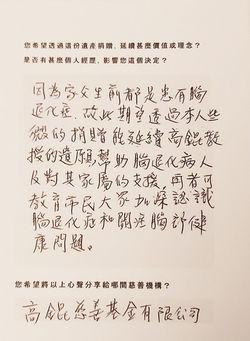 您希望透過這份遺產捐贈，延續甚麼價值或理念？
是否有甚麼個人經歷，影響您這個決定？
因為家父生前都是患有腦
退化症，故此期望透過本人些
微的捐贈能延續高錕教
授的遺願，幫助腦退化病人
及對其家屬的支援，再者可
教育市民大家加深認識
腦退化症和關注腦部健
康問題。
您希望將以上心聲分享給哪間慈善機構？
高錕慈善基金有限公司